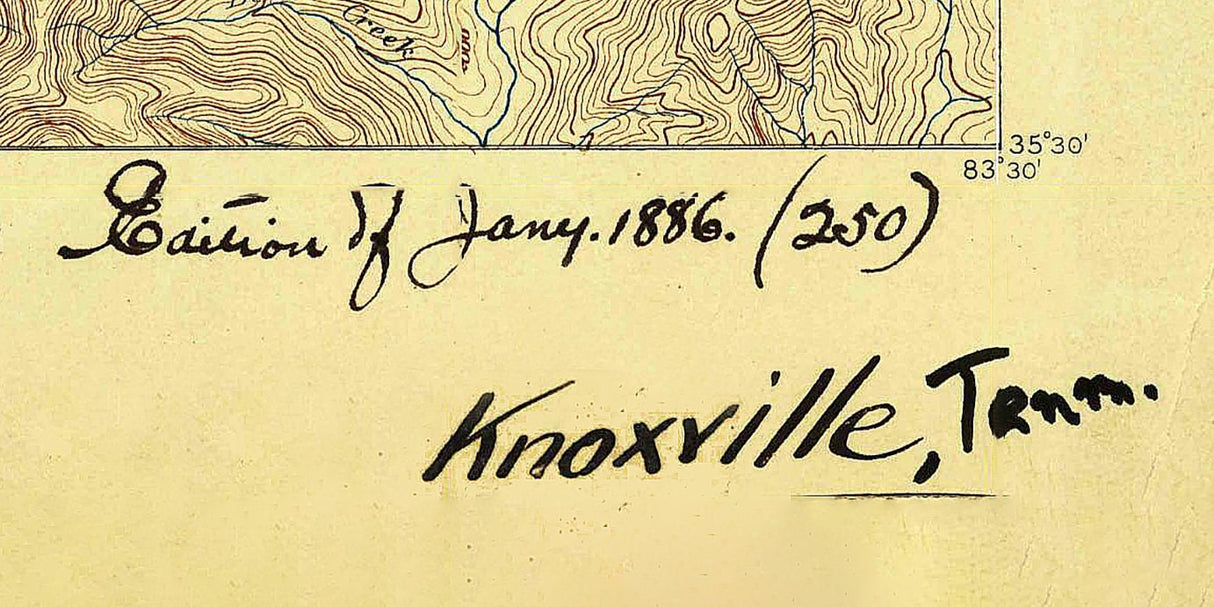 Creek
35°30'
83°30'
Edition of Jany. 1886. (250)
Knoxville, Tenn.